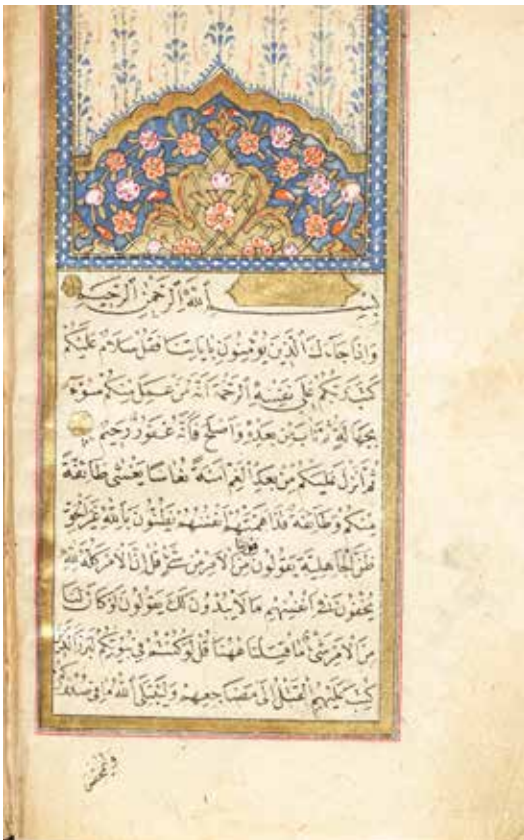 بِسْمِ اللهِ الرَّحْمٰنِ الرَّحِيمِ
وَاِذَا جَاءَكَ الَّذِينَ يُؤْمِنُونَ بِاٰيَاتِنَا فَقُلْ سَلَامٌ عَلَيْكُمْ
كَتَبَ رَبُّكُمْ عَلٰى نَفْسِهِ الرَّحْمَةَ اَنَّهُ مَنْ عَمِلَ مِنْكُمْ سُوءًا
بِجَهَالَةٍ ثُمَّ تَابَ مِنْ بَعْدِهِ وَاَصْلَحَ فَاَنَّهُ غَفُورٌ رَحِيمٌ
ثُمَّ اَنْزَلَ عَلَيْكُمْ مِنْ بَعْدِ الْغَمِّ اَمَنَةً نُعَاسًا يَغْشٰى طَائِفَةً
مِنْكُمْ وَطَائِفَةٌ قَدْ اَهَمَّتْهُمْ اَنْفُسُهُمْ يَظُنُّونَ بِاللهِ غَيْرَ الْحَقِّ
ظَنَّ الْجَاهِلِيَّةِ يَقُولُونَ مِنَ الْاَمْرِ مِنْ شَيْءٍ قُلْ اِنَّ الْاَمْرَ كُلَّهُ لِلهِ
يُخْفُونَ فِي اَنْفُسِهِمْ مَا لَا يُبْدُونَ لَكَ يَقُولُونَ لَوْ كَانَ لَنَا
مِنَ الْاَمْرِ شَيْءٌ مَا قُتِلْنَا هٰهُنَا قُلْ لَوْ كُنْتُمْ فِي بُيُوتِكُمْ لَبَرَزَ الَّذِينَ
كُتِبَ عَلَيْهِمُ الْقَتْلُ اِلٰى مَضَاجِعِهِمْ وَلِيَبْتَلِيَ اللهُ مَا فِي صُدُورِكُمْ
وليمحص